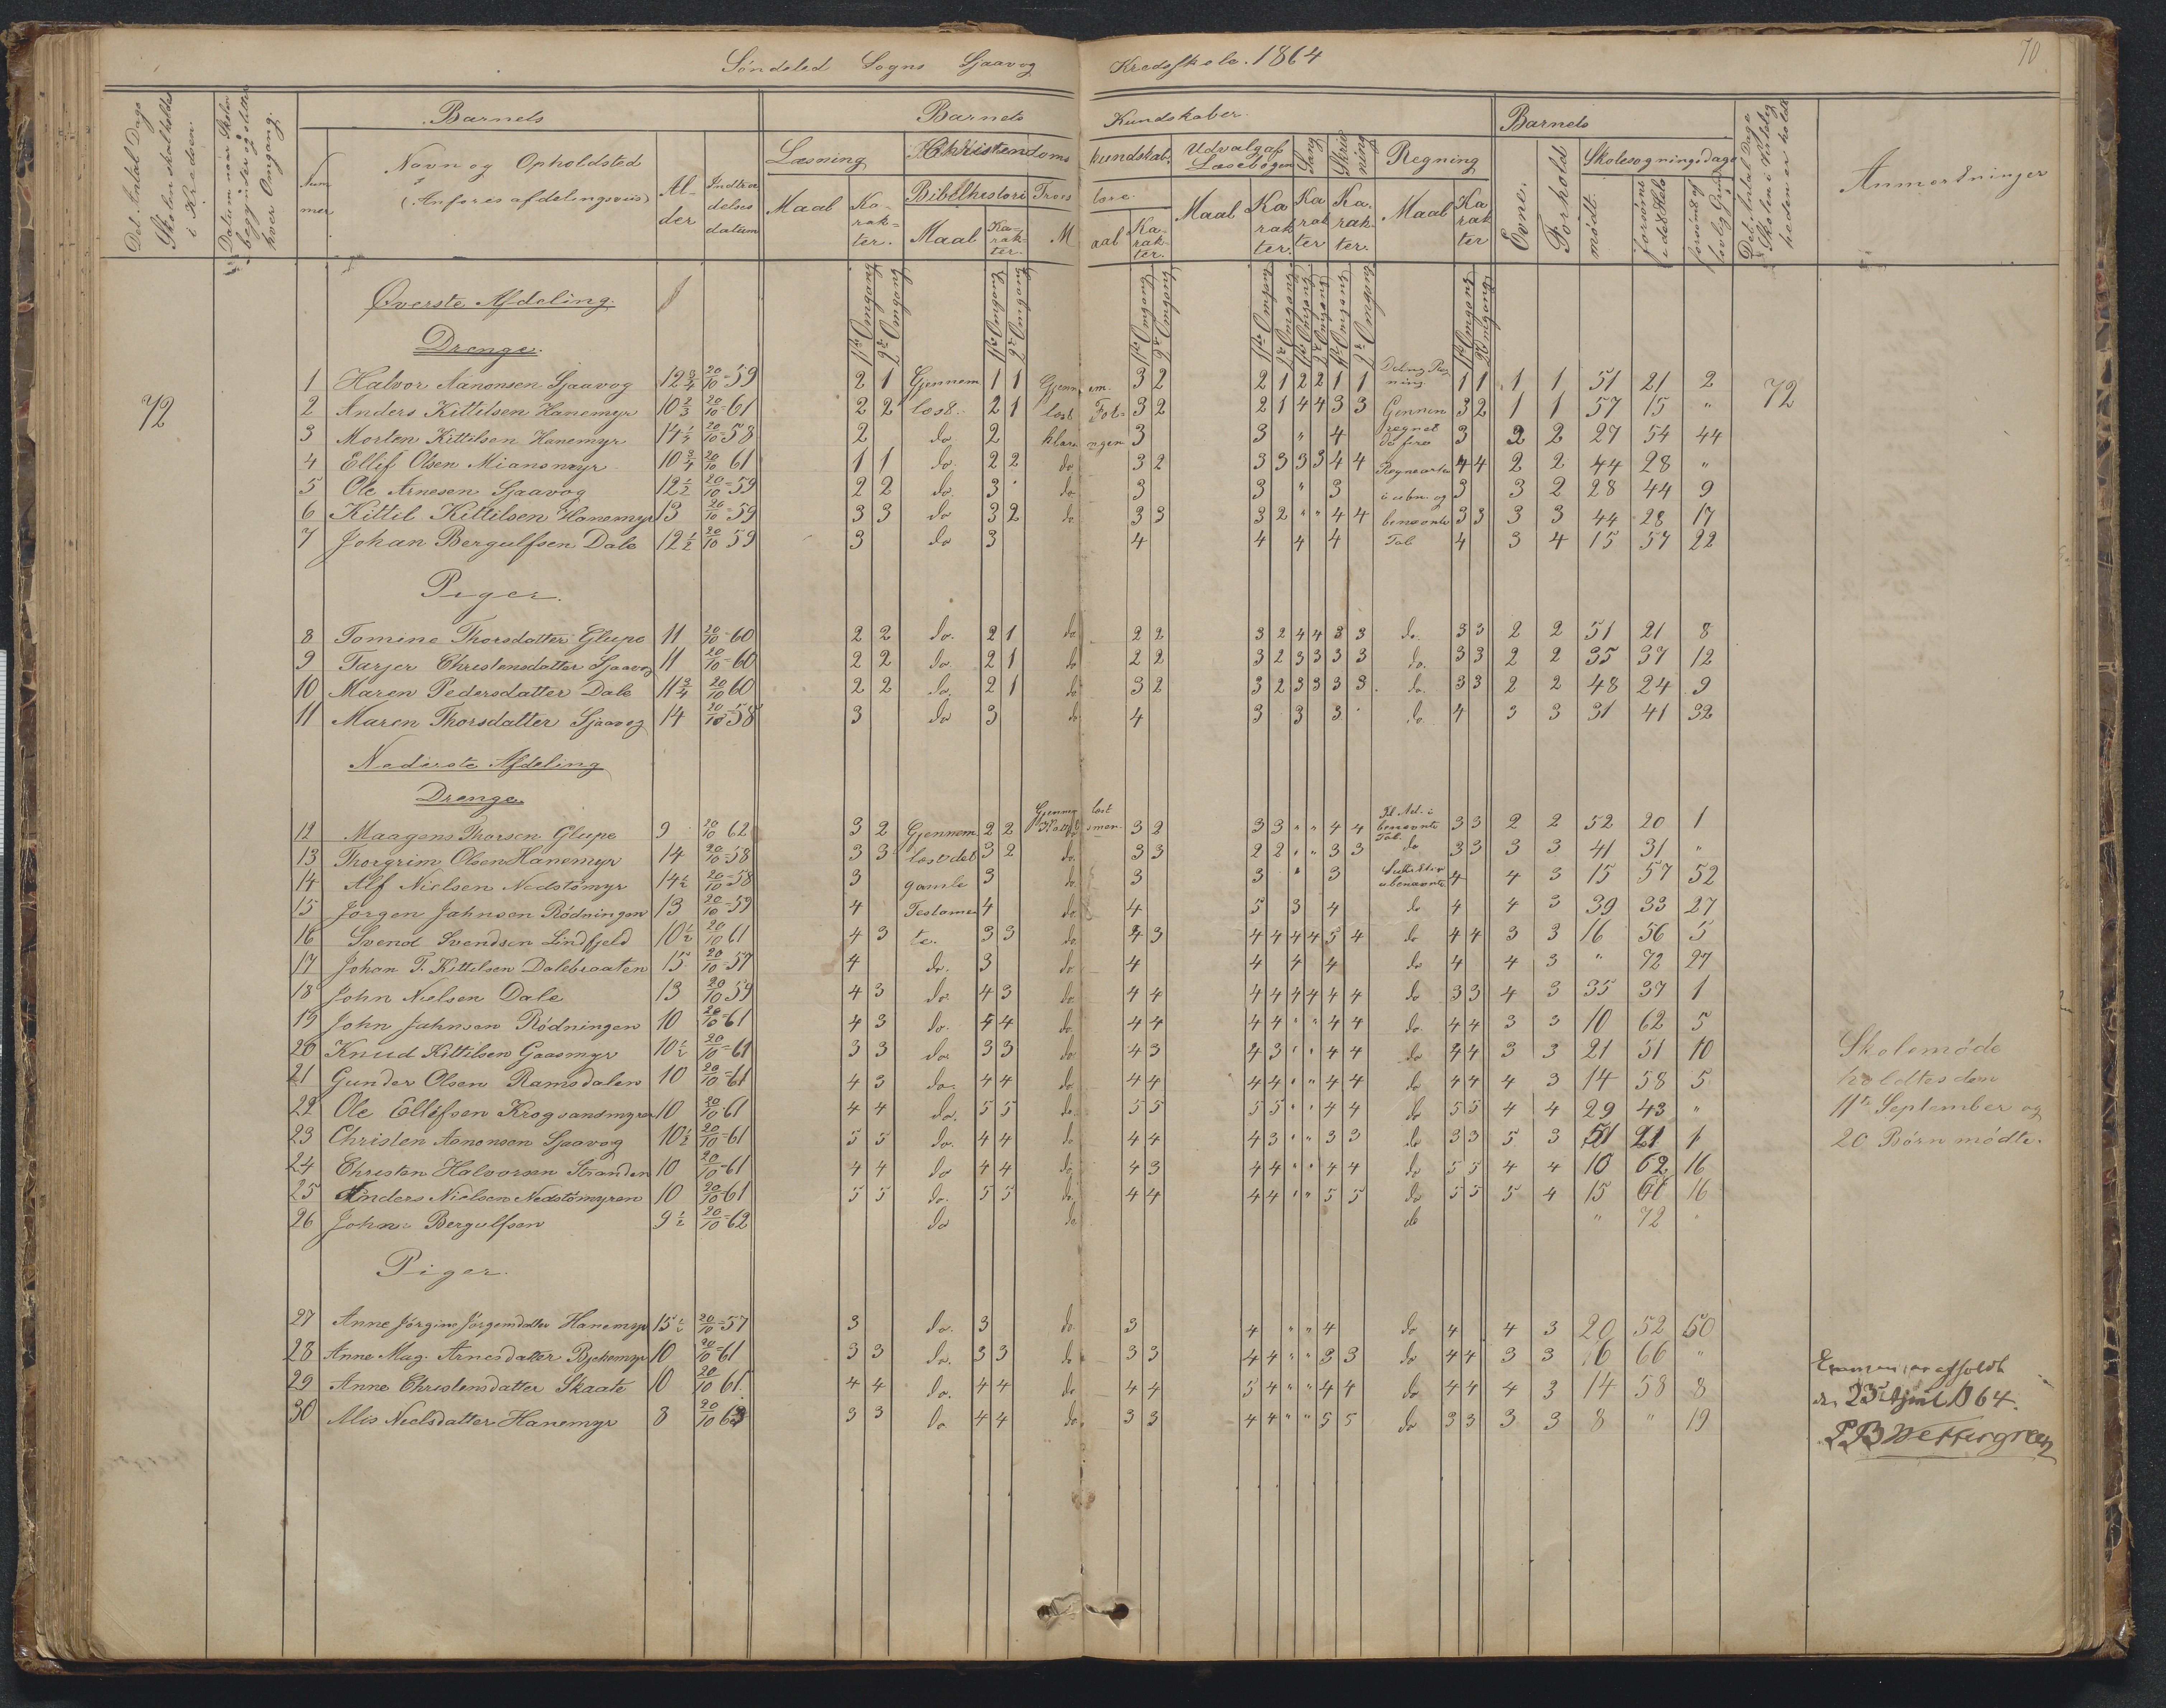 Söndeled Sogns Sjaavog Kredsskole. 1864
70
Det Antal Dage Skolen skal holdes i Kredsen.
Datum naar Skolen begynder og slutter hver Omgang.
Barnets
Barnets Kundskaber.
Barnets
Det Antal Dage Skolen i Virkelig heden er holdt
Anmærkninger
Num mer
Navn og Opholdsted
(Anføres afdelingsviis)
Al- der
Indtræ delses datum
Læsning
Christendoms kundskab.
Udvalg af Læsebogen
Sang
Skriv ning
Regning
Evne.
Forhold
Skolesøgningsdage
Maal
Ka- rak- ter.
Bibelhistori
Troes lære.
Maal
Ka- rak- ter.
Maal
Ka- rak- ter.
Maal
Ka rak ter.
Ka rak ter
Ka- rak- ter.
Maal
Ka rak ter
mødt.
forsømt i det Hele
forsømt af lovlig Grund
1ste Omgang 2den Omgang
Øverste Afdeling.
Drenge.
72
72
1 Halvor Aanonsen Sjaavog 12 3/4 20/10-59 2 1 Gjennem 1 1 Gjenn em. 3 2 2 1 2 2 1 1 Deling Reg ning. 1 1 1 1 51 21 2
2 Anders Kittilsen Hanemyr 10 2/3 20/10-61 2 2 læst. 2 1 læst For- 3 2 2 1 4 4 3 3 Gennem 3 2 1 1 57 15 "
3 Morten Kittilsen Hanemyr 14 1/2 20/10-58 2 do 2 klare ngen 3 3 " 4 regnet de fire 3 2 2 27 54 44
4 Ellif Olsen Miansmyr 10 3/4 20/10 61 1 1 do. 2 2 do 3 2 3 3 3 3 4 4 Regnearter 4 4 2 2 44 28 "
5 Ole Arnesen Sjaavog 12 1/2 20/10-59 2 2 do. 3 do 3 3 " 3 i ubn. og 3 3 2 28 44 9
6 Kittil Kittilsen Hanemyr 13 20/10-59 3 3 do 3 2 do 3 3 3 2 " " 4 4 benævnte 3 3 3 3 44 28 17
7 Johan Bergulfsen Dale 12 1/2 20/10 59 3 do 3 4 4 4 4 Tal 4 3 4 15 57 22
Piger.
8 Tomine Thorsdatter Glupe 11 20/10-60 2 2 do. 2 1 do 2 2 3 2 4 4 3 3 do. 3 3 2 2 51 21 8
9 Tarjer Christensdatter Sjaavog 11 20/10-60 2 2 do 2 1 do 2 2 3 2 3 3 3 3 do. 3 3 2 2 35 37 12
10 Maren Pedersdatter Dale 11 3/4 20/10 60 2 2 do. 2 1 do 3 2 3 2 3 3 3 3 do. 3 3 2 2 48 24 9
11 Maren Thorsdatter Sjaavog 14 20/10-58 3 do 3 do 4 3 3 3 do 4 3 3 31 41 32
Nederste Afdeling
Drenge.
12 Maagens Thorsen Glupe 9 20/10 62 3 2 Gjennem 2 2 3 2 3 3 " " 4 4 benævnte Tal. 3 3 2 2 52 20 1
13 Thorgrim Olsen Hanemyr 14 20/10-58 3 3 læst det 3 2 do. 3 3 2 2 " " 3 3 do 3 3 3 3 41 31 "
14 Alf Nielsen Nedstömyr 14 1/2 20/10-58 3 gamle 3 do 3 3 " 3 ubenævnte 4 4 3 15 57 52
15 Jörgen Jahnsen Rödningen 13 20/10-59 4 Testamen 4 do 4 5 3 4 do 4 4 3 39 33 27
16 Svend Svendsen Lindfjeld 10 1/2 20/10 61 4 3 te. 3 3 do. 4 3 4 4 4 4 5 4 do 4 4 3 3 16 56 5
17 Johan T. Kittilsen Dalebraaten 15 20/10-57 4 do. 3 do 4 4 4 4 do 4 4 3 " 72 27
18 John Nielsen Dale 13 20/10 59 4 3 do. 4 3 do 4 4 4 4 4 4 4 4 do 3 3 4 3 35 37 1
19 John Jahnsen Rödningen 10 20/10-61 4 3 do. 4 4 do 4 4 4 4 " " 4 4 do 4 4 3 3 10 62 5
20 Knud Kittilsen Gaasmyr 10 1/2 20/10-61 3 3 do. 3 3 do 4 3 4 3 " " 4 4 do 4 4 3 3 21 51 10
21 Gunder Olsen Ramsdalen 10 20/10-61 4 3 do. 4 4 do 4 4 4 4 " " 4 4 do 4 4 4 3 14 58 5
22 Ole Ellifsen Krogvansmyren 10 20/10-61 4 4 do. 5 5 do. 5 5 5 5 " " 4 4 do 5 5 4 4 29 43 "
23 Christen Aanonsen Sjaavog 10 1/2 20/10-61 5 5 do. 4 4 do 4 4 4 3 " " 3 3 do 3 3 5 3 51 21 1
24 Christen Halvorsen Stranden 10 20/10-61 4 4 do 4 4 do 4 3 4 4 " " 4 4 do 5 5 4 4 10 62 16
25 Anders Nielsen Nedstömyren 10 20/10-61 5 5 do. 5 5 do 4 4 4 4 " " 5 5 do 5 5 5 4 15 16
26 John Bergulfsen 9 1/2 20/10-62 do do do " 72 "
Skolemøde
holdtes den
11te September og
20 Børn mødte.
Piger.
27 Anne Jörgine Jörgensdatter Hanemyr 15 1/2 20/10-57 3 do. 3 do. 3 4 " " 4 do 4 4 3 20 52 50
28 Anne Mag. Arnesdatter 10 20/10-61 3 3 do. 3 3 do 3 3 4 4 " " 3 3 do 4 4 3 3 6 66 "
29 Anne Christensdatter Skaate 10 20/10 61 4 4 do. 4 4 do 4 4 5 4 " " 4 4 do 4 4 4 3 14 58 8
30 Alis Nielsdatter Hanemyr 8 20/10 63 3 3 do 4 4 do. 3 3 4 4 " " 5 5 do 3 3 3 3 8 " 19
Examen er afholdt
d. 23 April 1864.
Wettergreen